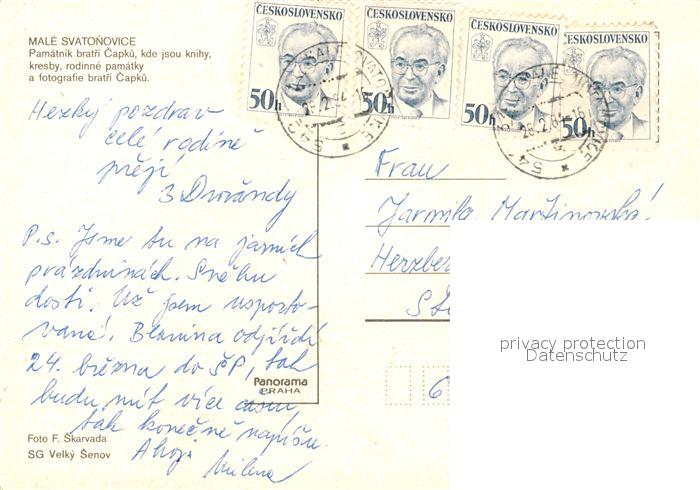 MALÉ SVATOŇOVICE
Památník bratří Čapků, kde jsou knihy,
kresby, rodinné památky
a fotografie bratří Čapků.
Hezký pozdrav
celé rodině
přejí
3 Dvořándy
P.s. Jsme tu na jarních
prázdninách. Sněhu
dosti. Už jsem
24. března do ŠP, tak
budu mít více času,
tak konečně napíšu.
Ahoj
Milena
Panorama
PRAHA
Foto F. Škarvada
SG Velký Šenov
ČESKOSLOVENSKO
50h
ČESKOSLOVENSKO
50h
ČESKOSLOVENSKO
50h
ČESKOSLOVENSKO
50h
Frau
Jarmila Martinovská
Herzber
6
privacy protection
Datenschutz